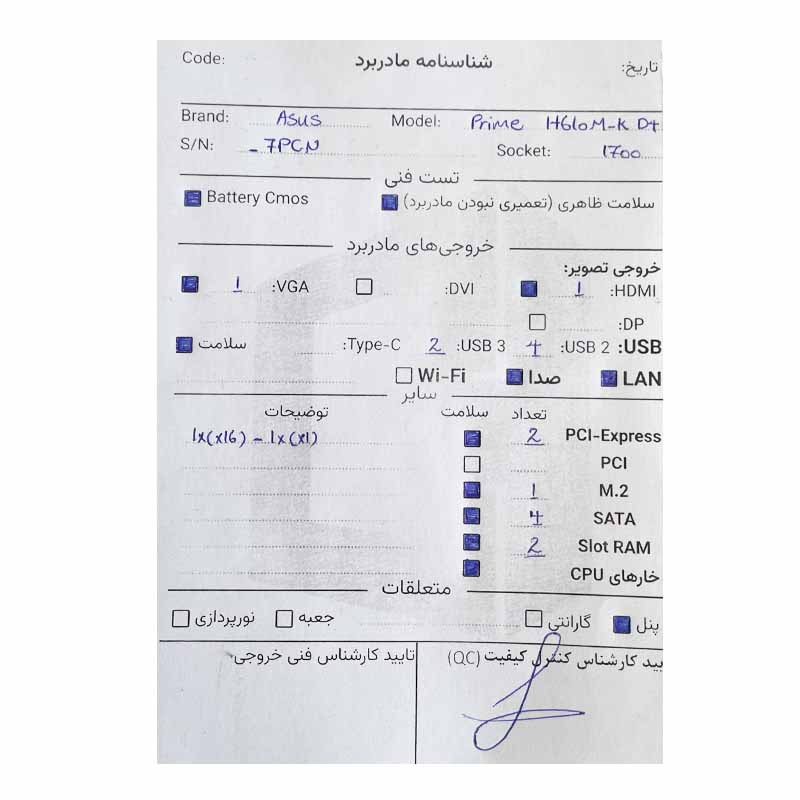 Code: شناسنامه مادربرد تاریخ:
Brand: Asus Model: Prime H610M-K D4
S/N: - 7PCN Socket: 1700
تست فنی
سلامت ظاهری (تعمیری نبودن مادربرد) Battery Cmos
خروجی‌های مادربرد
خروجی تصویر:
HDMI: 1 DVI: VGA: 1
DP:
USB: USB 2: 4 USB 3: 2 Type-C: سلامت
LAN صدا Wi-Fi
سایر
تعداد سلامت توضیحات
PCI-Express 2 1x(x16) - 1x(x1)
PCI
M.2 1
SATA 4
Slot RAM 2
خارهای CPU
متعلقات
پنل گارانتی جعبه نورپردازی
یید کارشناس کنترل کیفیت (QC) تایید کارشناس فنی خروجی: